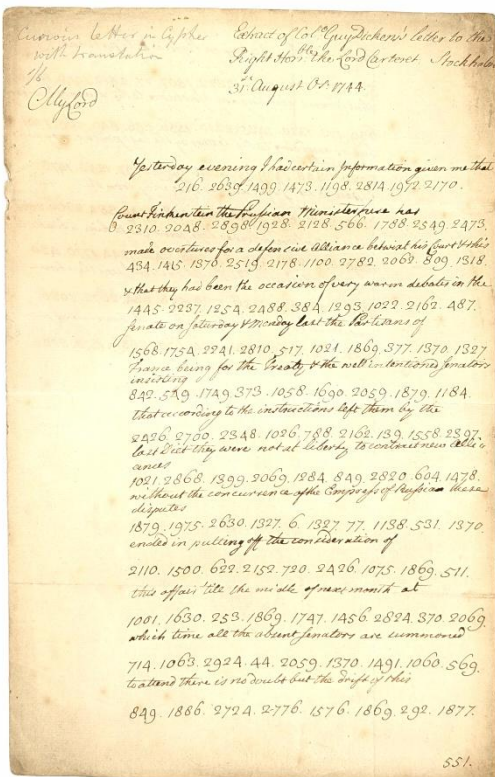 Curious letter in Cypher
with translation
Extract of Colº Guy Dickens's letter to the
Right Honble the Lord Carteret Stockholm
31st August O.S. 1744.
My Lord
Yesterday evening I had certain Information given me that
216. 2639. 1499. 1473. 1198. 2814. 1972. 2170.
Count Finkenstein the Prussian Minister here has
2310. 2048. 2898. 1928. 2128. 566. 1758. 2549. 2473.
made overtures for a defensive Alliance betwixt his Court & this
434. 1415. 1370. 2519. 2178. 1100. 2782. 2062. 809. 1318.
& that they had been the occasion of very warm debates in the
1445. 2237. 1254. 2488. 384. 1293. 1022. 2162. 487.
Senate on Saturday & Monday last the Partisans of
1568. 1754. 2241. 2810. 517. 1021. 1869. 377. 1370. 1327
France being for the Treaty & the well intentioned Senators
insisting
842. 549. 1749. 373. 1058. 1690. 2059. 1879. 1184.
that according to the instructions left them by the
2426. 2700. 2348. 1026. 788. 2162. 139. 1558. 2397.
last Diet they were not at liberty to contract new Alli
ances
1021. 2868. 1399. 2069. 1284. 849. 2820. 604. 1478.
without the concurrence of the Empress of Russia these
disputes
1879. 1975. 2630. 1327. 6. 1327. 77. 1138. 531. 1370.
ended in putting off the consideration of
2110. 1500. 622. 2152. 720. 2426. 1075. 1869. 511.
this affair 'till the middle of next month at
1001. 1630. 253. 1869. 1747. 1456. 2824. 370. 2069.
which time all the absent Senators are summoned
714. 1063. 2924. 44. 2059. 1370. 1491. 1060. 569.
to attend there is no doubt but the drift of this
849. 1886. 2724. 2776. 1576. 1869. 292. 1877.
551.